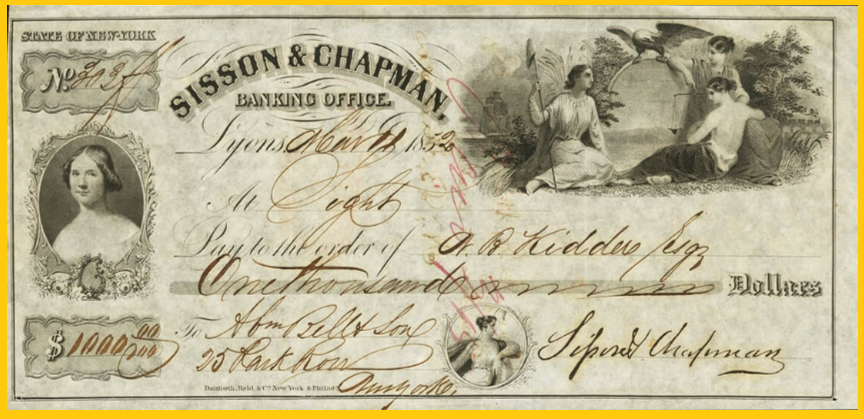 STATE OF NEW-YORK
No.
SISSON & CHAPMAN,
BANKING OFFICE.
Lyons, Mar 11 1852
At Sight
Pay to the order of A. B. Kidder Esq
One thousand Dollars
$1000 00/100
To Abm Bell & Son
25 Park Row
New York
Sisson & Chapman
Danforth, Bald & Co. New York & Philad